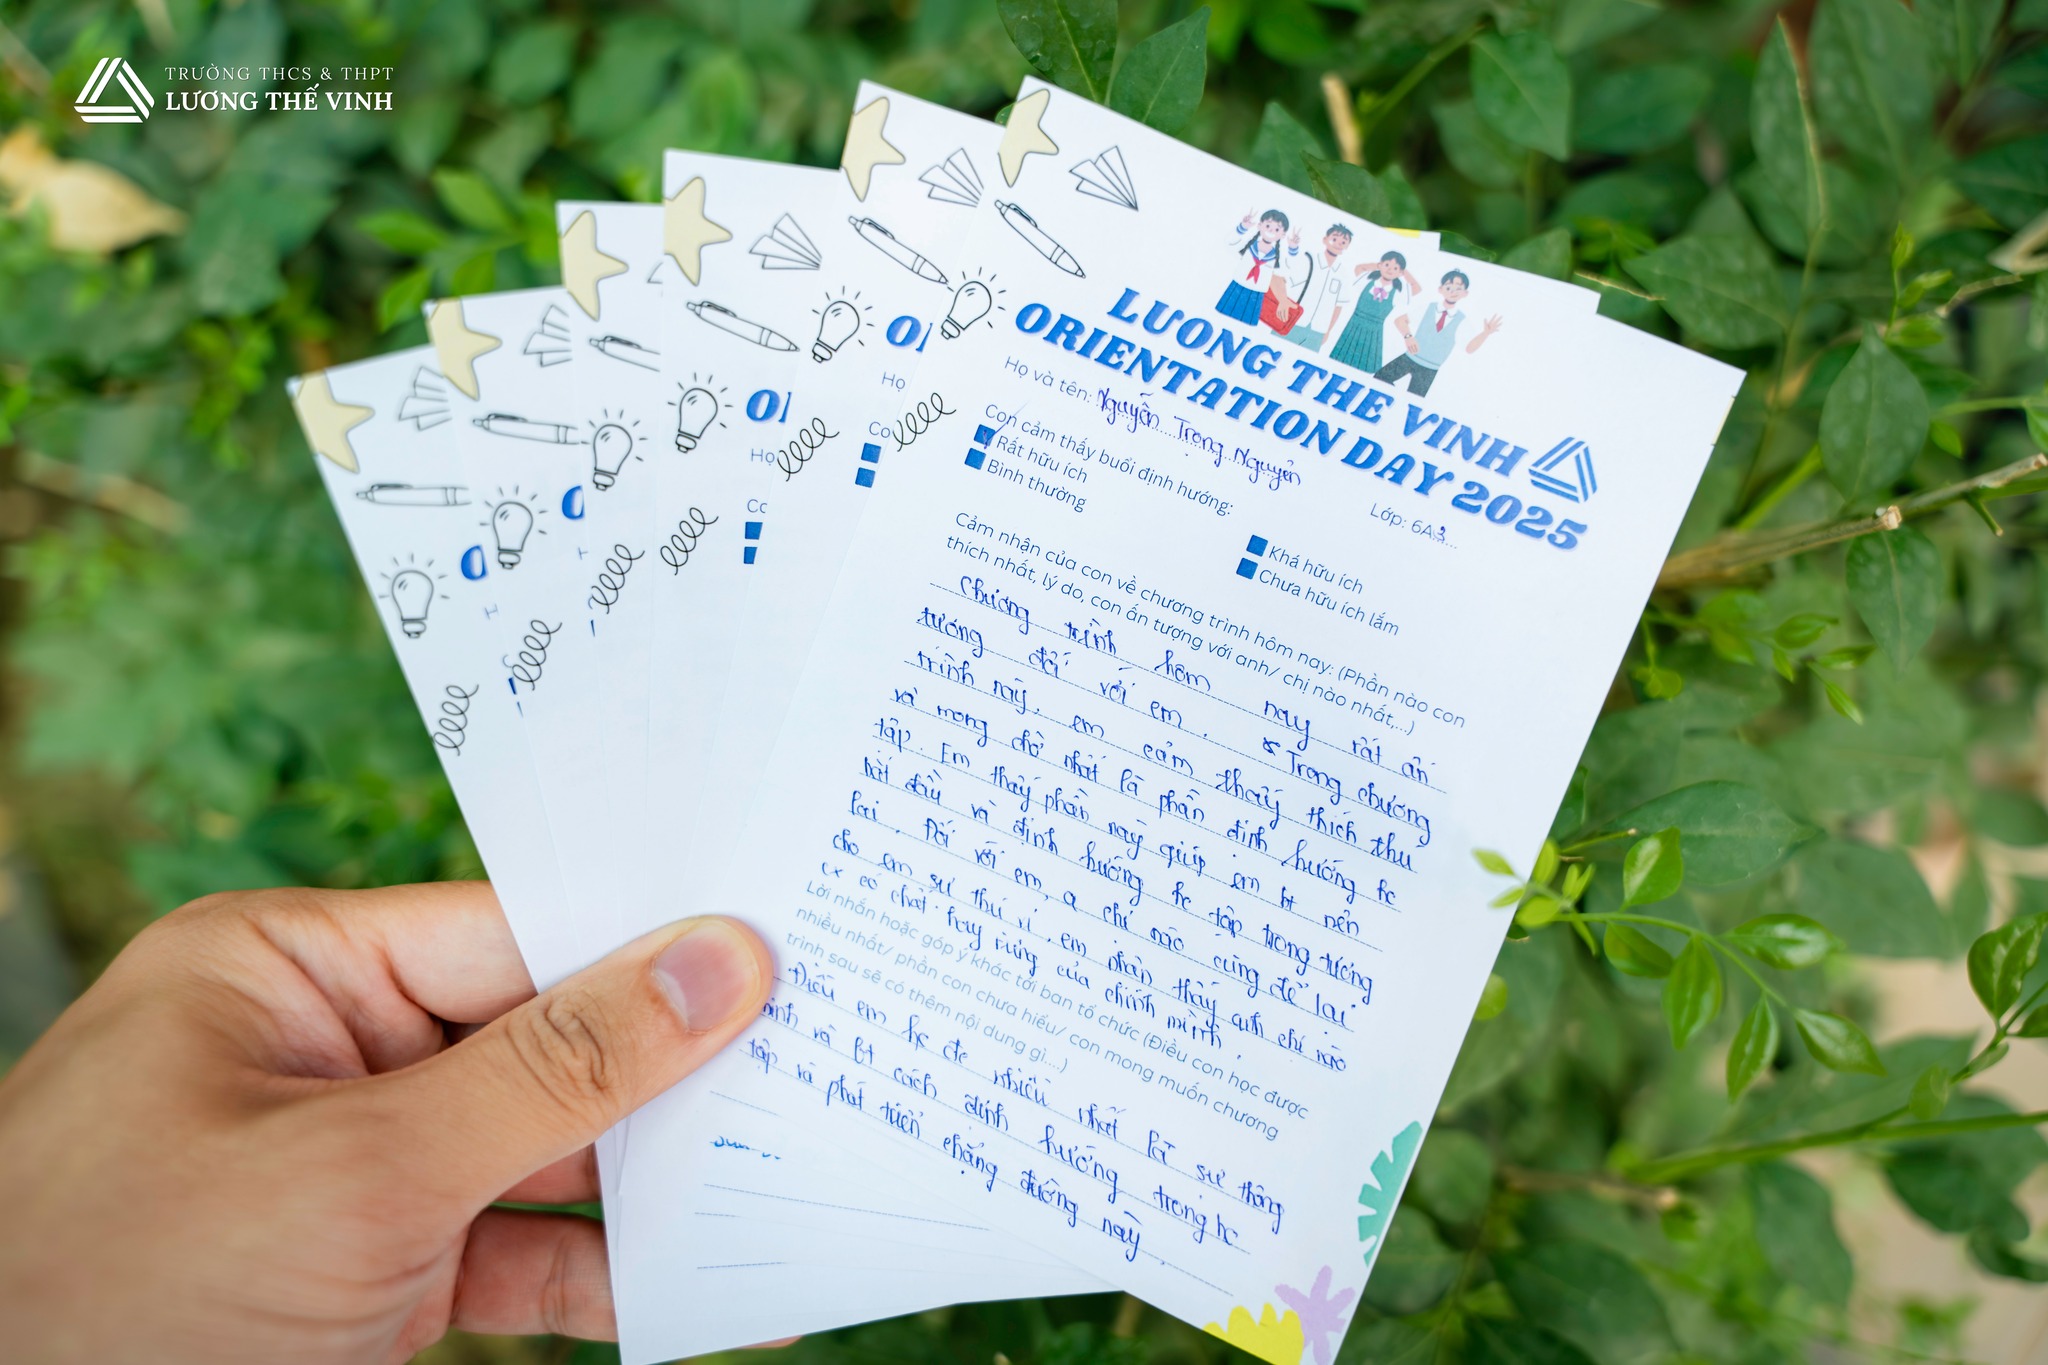 TRƯỜNG THCS & THPT
LƯƠNG THẾ VINH
LUONG THE VINH
ORIENTATION DAY 2025
Họ và tên: Nguyễn Trọng Nguyên
Lớp: 6A3
Con cảm thấy buổi định hướng:
Rất hữu ích
Bình thường
Khá hữu ích
Chưa hữu ích lắm
Cảm nhận của con về chương trình hôm nay: (Phần nào con
thích nhất, lý do, con ấn tượng với anh/ chị nào nhất,...)
Chương trình hôm nay rất ấn
tượng đối với em. Trong chương
trình này, em cảm thấy thích thú
và mong chờ nhất là phần định hướng hc
tập. Em thấy phần này giúp em bt nên
bắt đầu và định hướng hc tập trong tương
lai. Đối với em, a chị nào cũng để lại
cho em sự thú vị, em nhận thấy anh chị nào
cx có chất riêng của chính mình.
Lời nhắn hoặc góp ý khác tới ban tổ chức (Điều con học được
nhiều nhất/ phần con chưa hiểu/ con mong muốn chương
trình sau sẽ có thêm nội dung gì...)
Điều em hc đc nhiều nhất là sự thông
minh và bt cách định hướng trong hc
tập và phát triển chặng đường này.